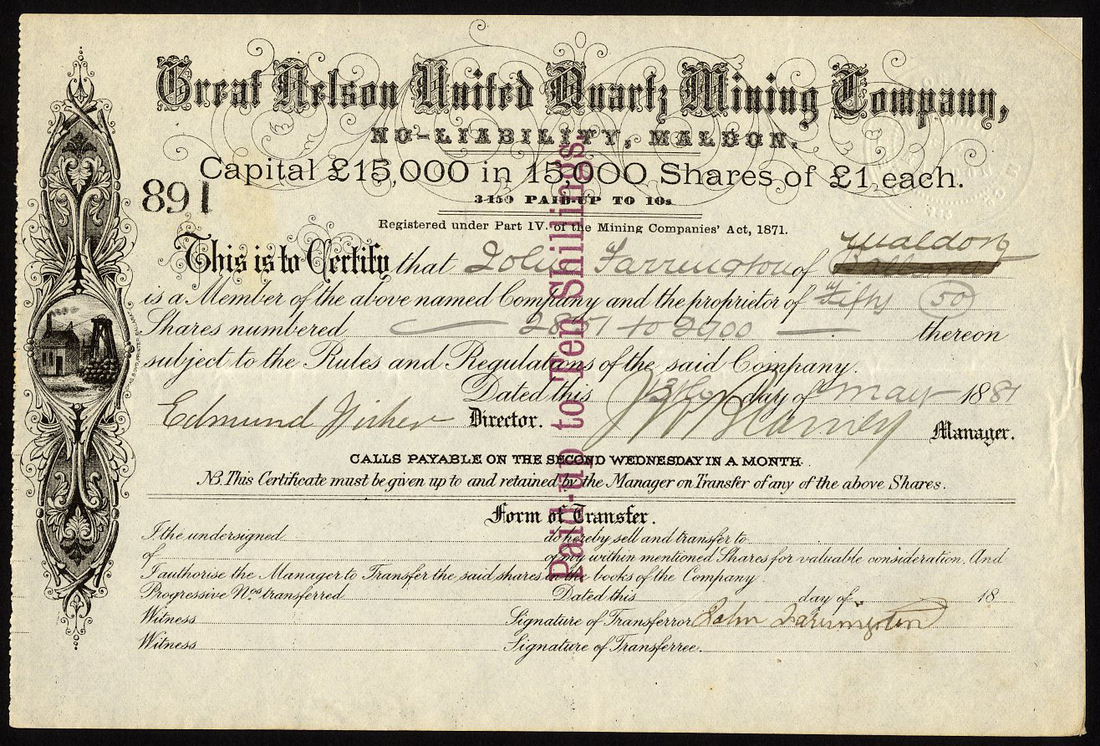 Great Nelson United Quartz Mining Company,
NO-LIABILITY, MALDON.
Capital £15,000 in 15,000 Shares of £1 each.
891
3150 PAID-UP TO 10s
Registered under Part IV. of the Mining Companies' Act, 1871.
Maldon
This is to Certify that John Farrington of
is a Member of the above named Company and the proprietor of Fifty 50
Shares numbered 2851 to 2900 thereon
subject to the Rules and Regulations of the said Company.
Dated this day of May 1881
Edmund Director. Manager.
CALLS PAYABLE ON THE SECOND WEDNESDAY IN A MONTH.
NB This Certificate must be given up to and retained by the Manager on Transfer of any of the above Shares.
Form of Transfer.
I the undersigned do hereby sell and transfer to
of of my within mentioned Shares for valuable consideration. And
I authorise the Manager to Transfer the said shares in the books of the Company
Progressive Nos transferred Dated this day of 18
Witness Signature of Transferror John Farrington
Witness Signature of Transferree.
Paid-up to Ten Shillings.